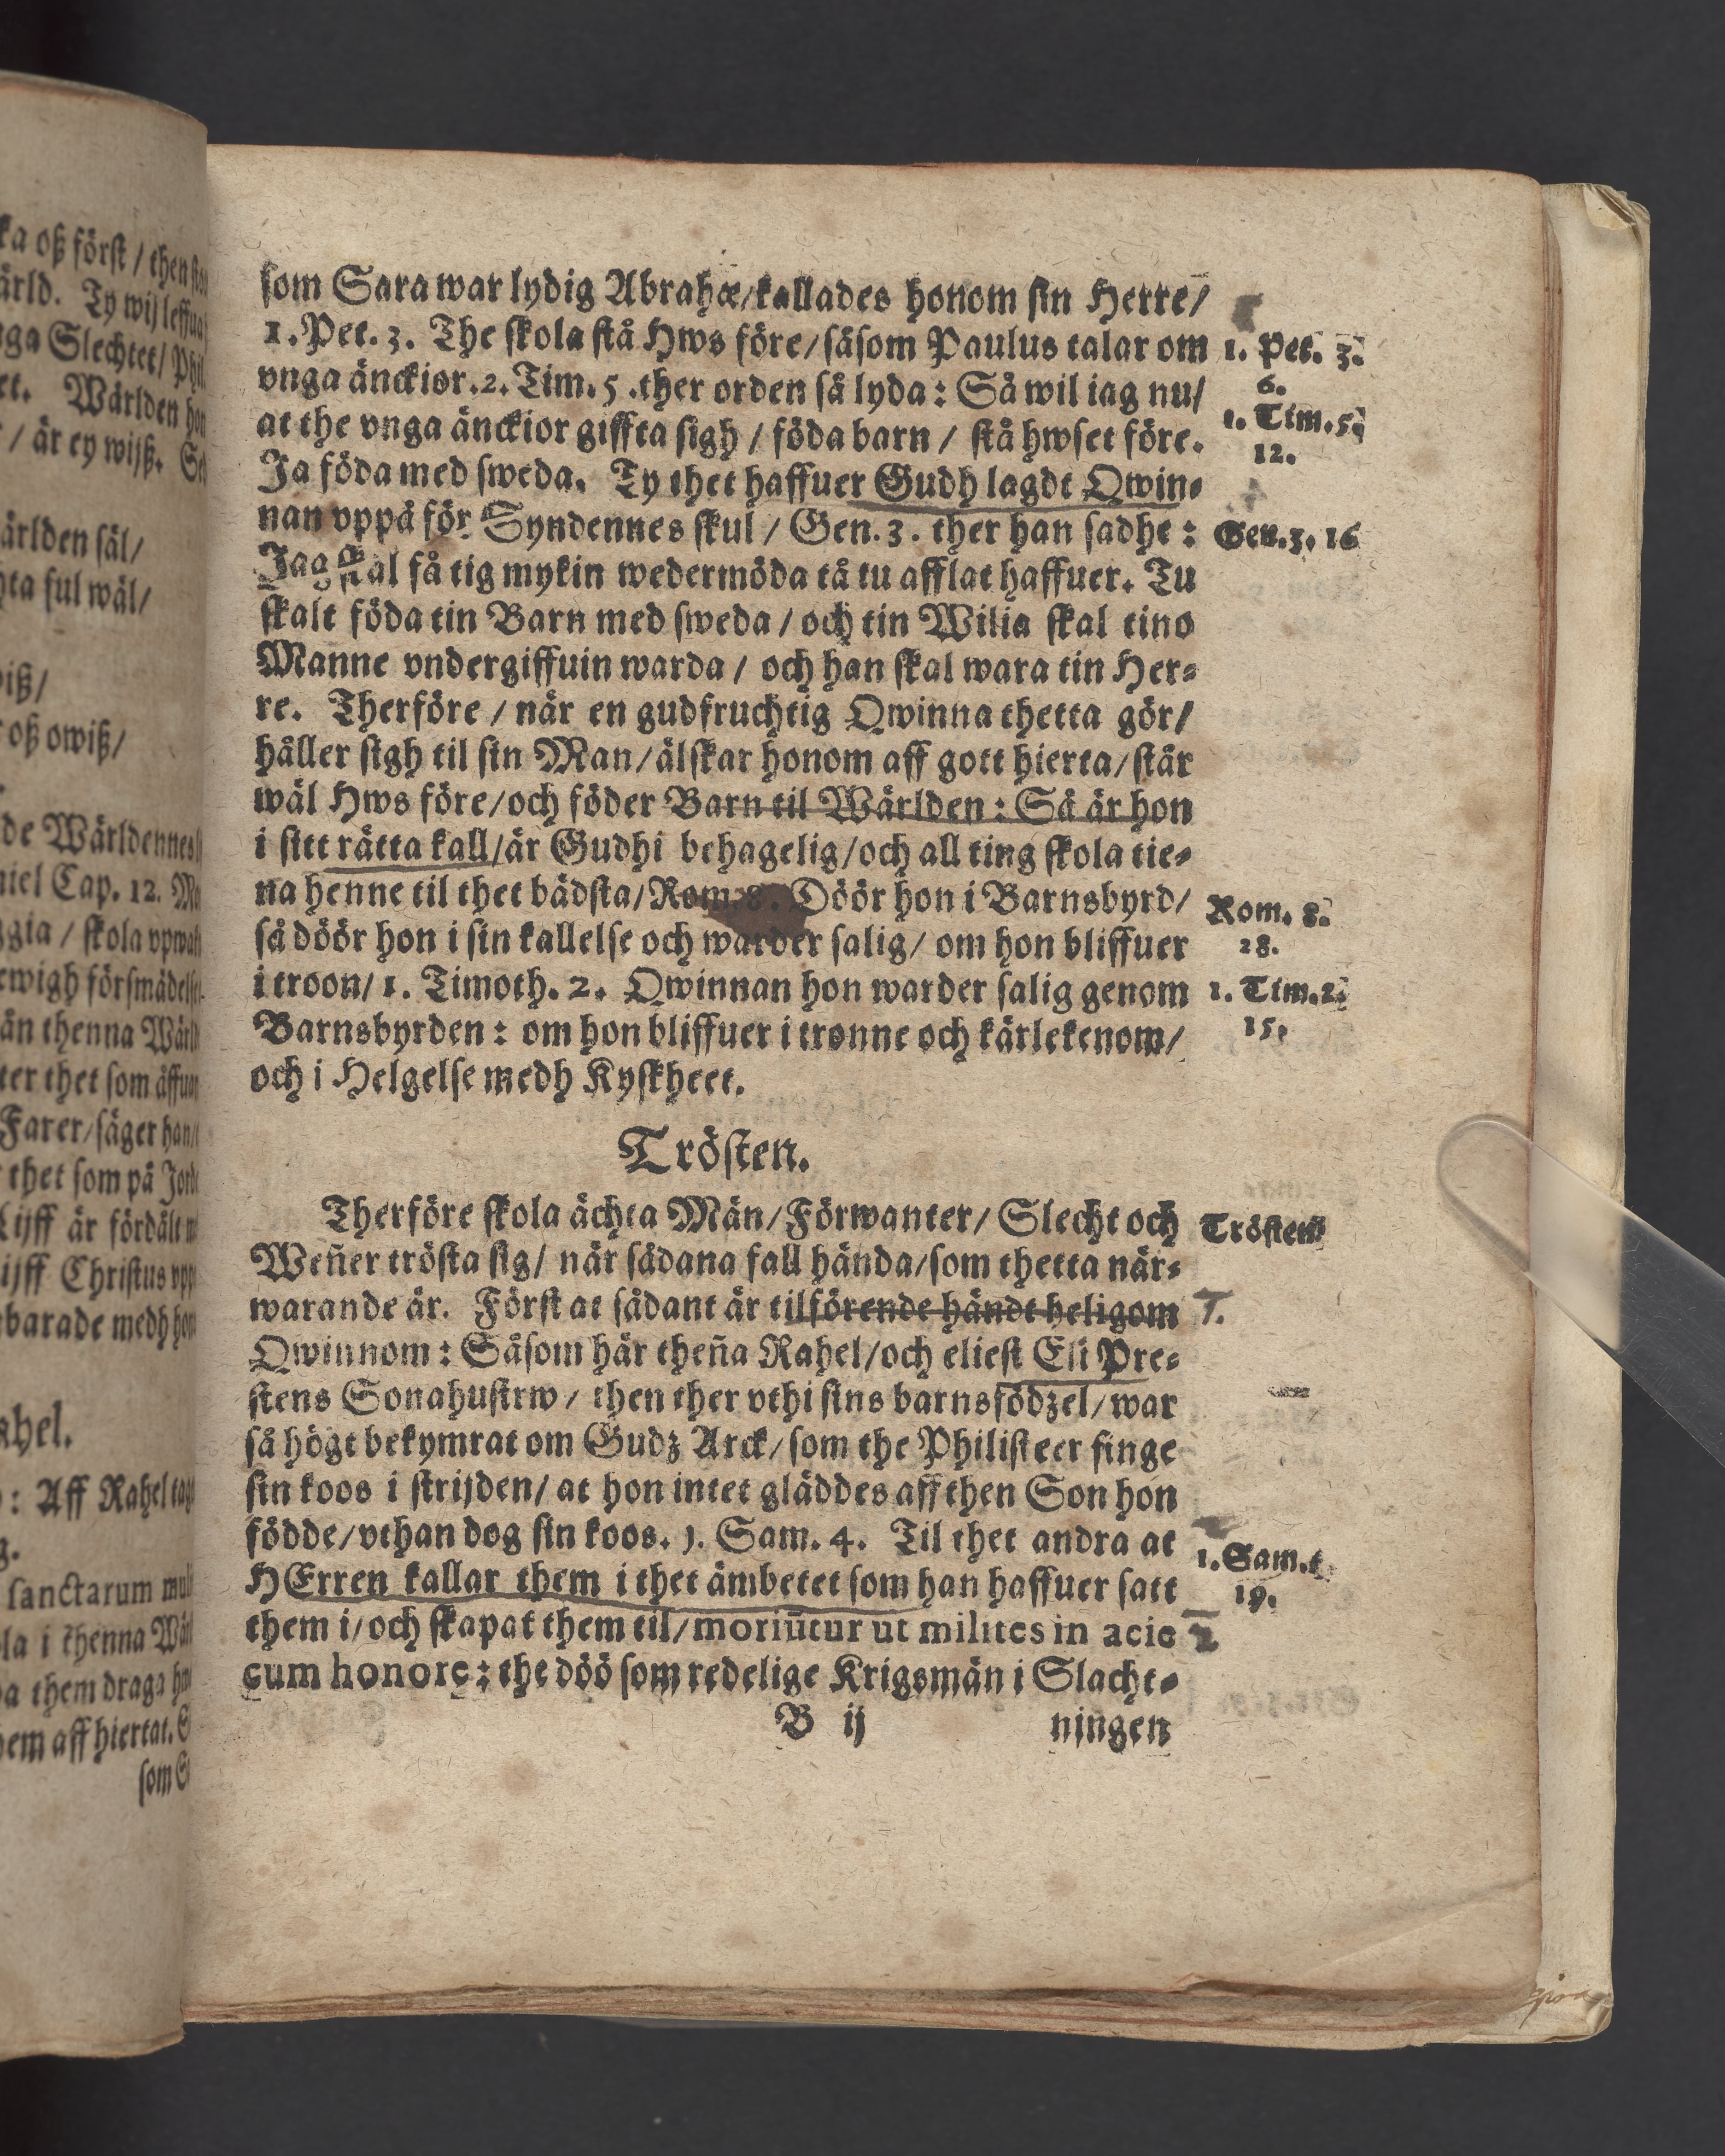 ka oß först / then
ärld. Ty wij leffua
ga Slechtet / Phil
et. Wärlden hon
/ är ey wijß. Se
ärlden säl /
hta ful wäl /
iß /
oß owiß /
de Wärldennes
niel Cap. 12. Må
ggia / skola vpwak
ewigh försmädelse
än thenna Wärld
ter thet som äffuan
Farer / säger han /
thet som på Jord
Lijff är fördålt
ijff Christus vpp
nbarade medh hon
ahel.
: Aff Rahel tag
g.
sanctarum mul
la i thenna Wärl
a them draga
hem aff hiertat. S
som S
som Sara war lydig Abrahæ / kallades honom sin Herre /
1. Pet. 3. The skola stå Hws före / såsom Paulus talar om
vnga änckior. 2. Tim. 5. ther orden så lyda : Så wil iag nu /
at the vnga änckior giffta sigh / föda barn / stå hwset före.
Ja föda med sweda. Ty thet haffuer Gudh lagdt Qwin-
nan vppå för Syndennes skul / Gen. 3. ther han sadhe :
Jag skal få tig mykin wedermöda tå tu afflat haffuer. Tu
skalt föda tin Barn med sweda / och tin Wilia skal tino
Manne vndergiffuin warda / och han skal wara tin Her-
re. Therföre / när en gudfruchtig Qwinna thetta gör /
håller sigh til sin Man / älskar honom aff gott hierta / står
wäl Hws före / och föder Barn til Wärlden : Så är hon
i sitt rätta kall / är Gudhi behagelig / och all ting skola tie-
na henne til thet bädsta / Rom. 8. Döör hon i Barnsbyrd /
så döör hon i sin kallelse och warder salig / om hon bliffuer
i troon / 1. Timoth. 2. Qwinnan hon warder salig genom
Barnsbyrden : om hon bliffuer i tronne och kärlekenom /
och i Helgelse medh Kyskheet.
Trösten.
Therföre skola ächta Män / Förwanter / Slecht och
Weñer trösta sig / när sådana fall hända / som thetta när-
warande är. Först at sådant är tilförende händt heligom
Qwinnom : Såsom här theña Rahel / och eliest Eli Pre-
stens Sonahustrw / then ther vthi sins barnsfödzel / war
så högt bekymrat om Gudz Arck / som the Philisteer finge
sin koos i strijden / at hon intet gläddes aff then Son hon
födde / vthan dog sin koos. 1. Sam. 4. Til thet andra at
HErren kallar them i thet ämbetet som han haffuer satt
them i / och skapat them til / moriūtur ut milites in acie
cum honore : the döö som redelige Krigsmän i Slacht-
B ij
ningen
1. Pet. 3.
6.
1. Tim. 5.
12.
Gen. 3. 16
Rom. 8.
28.
1. Tim. 2.
15.
Trösten
1.
1. Sam. 4
19.
2.